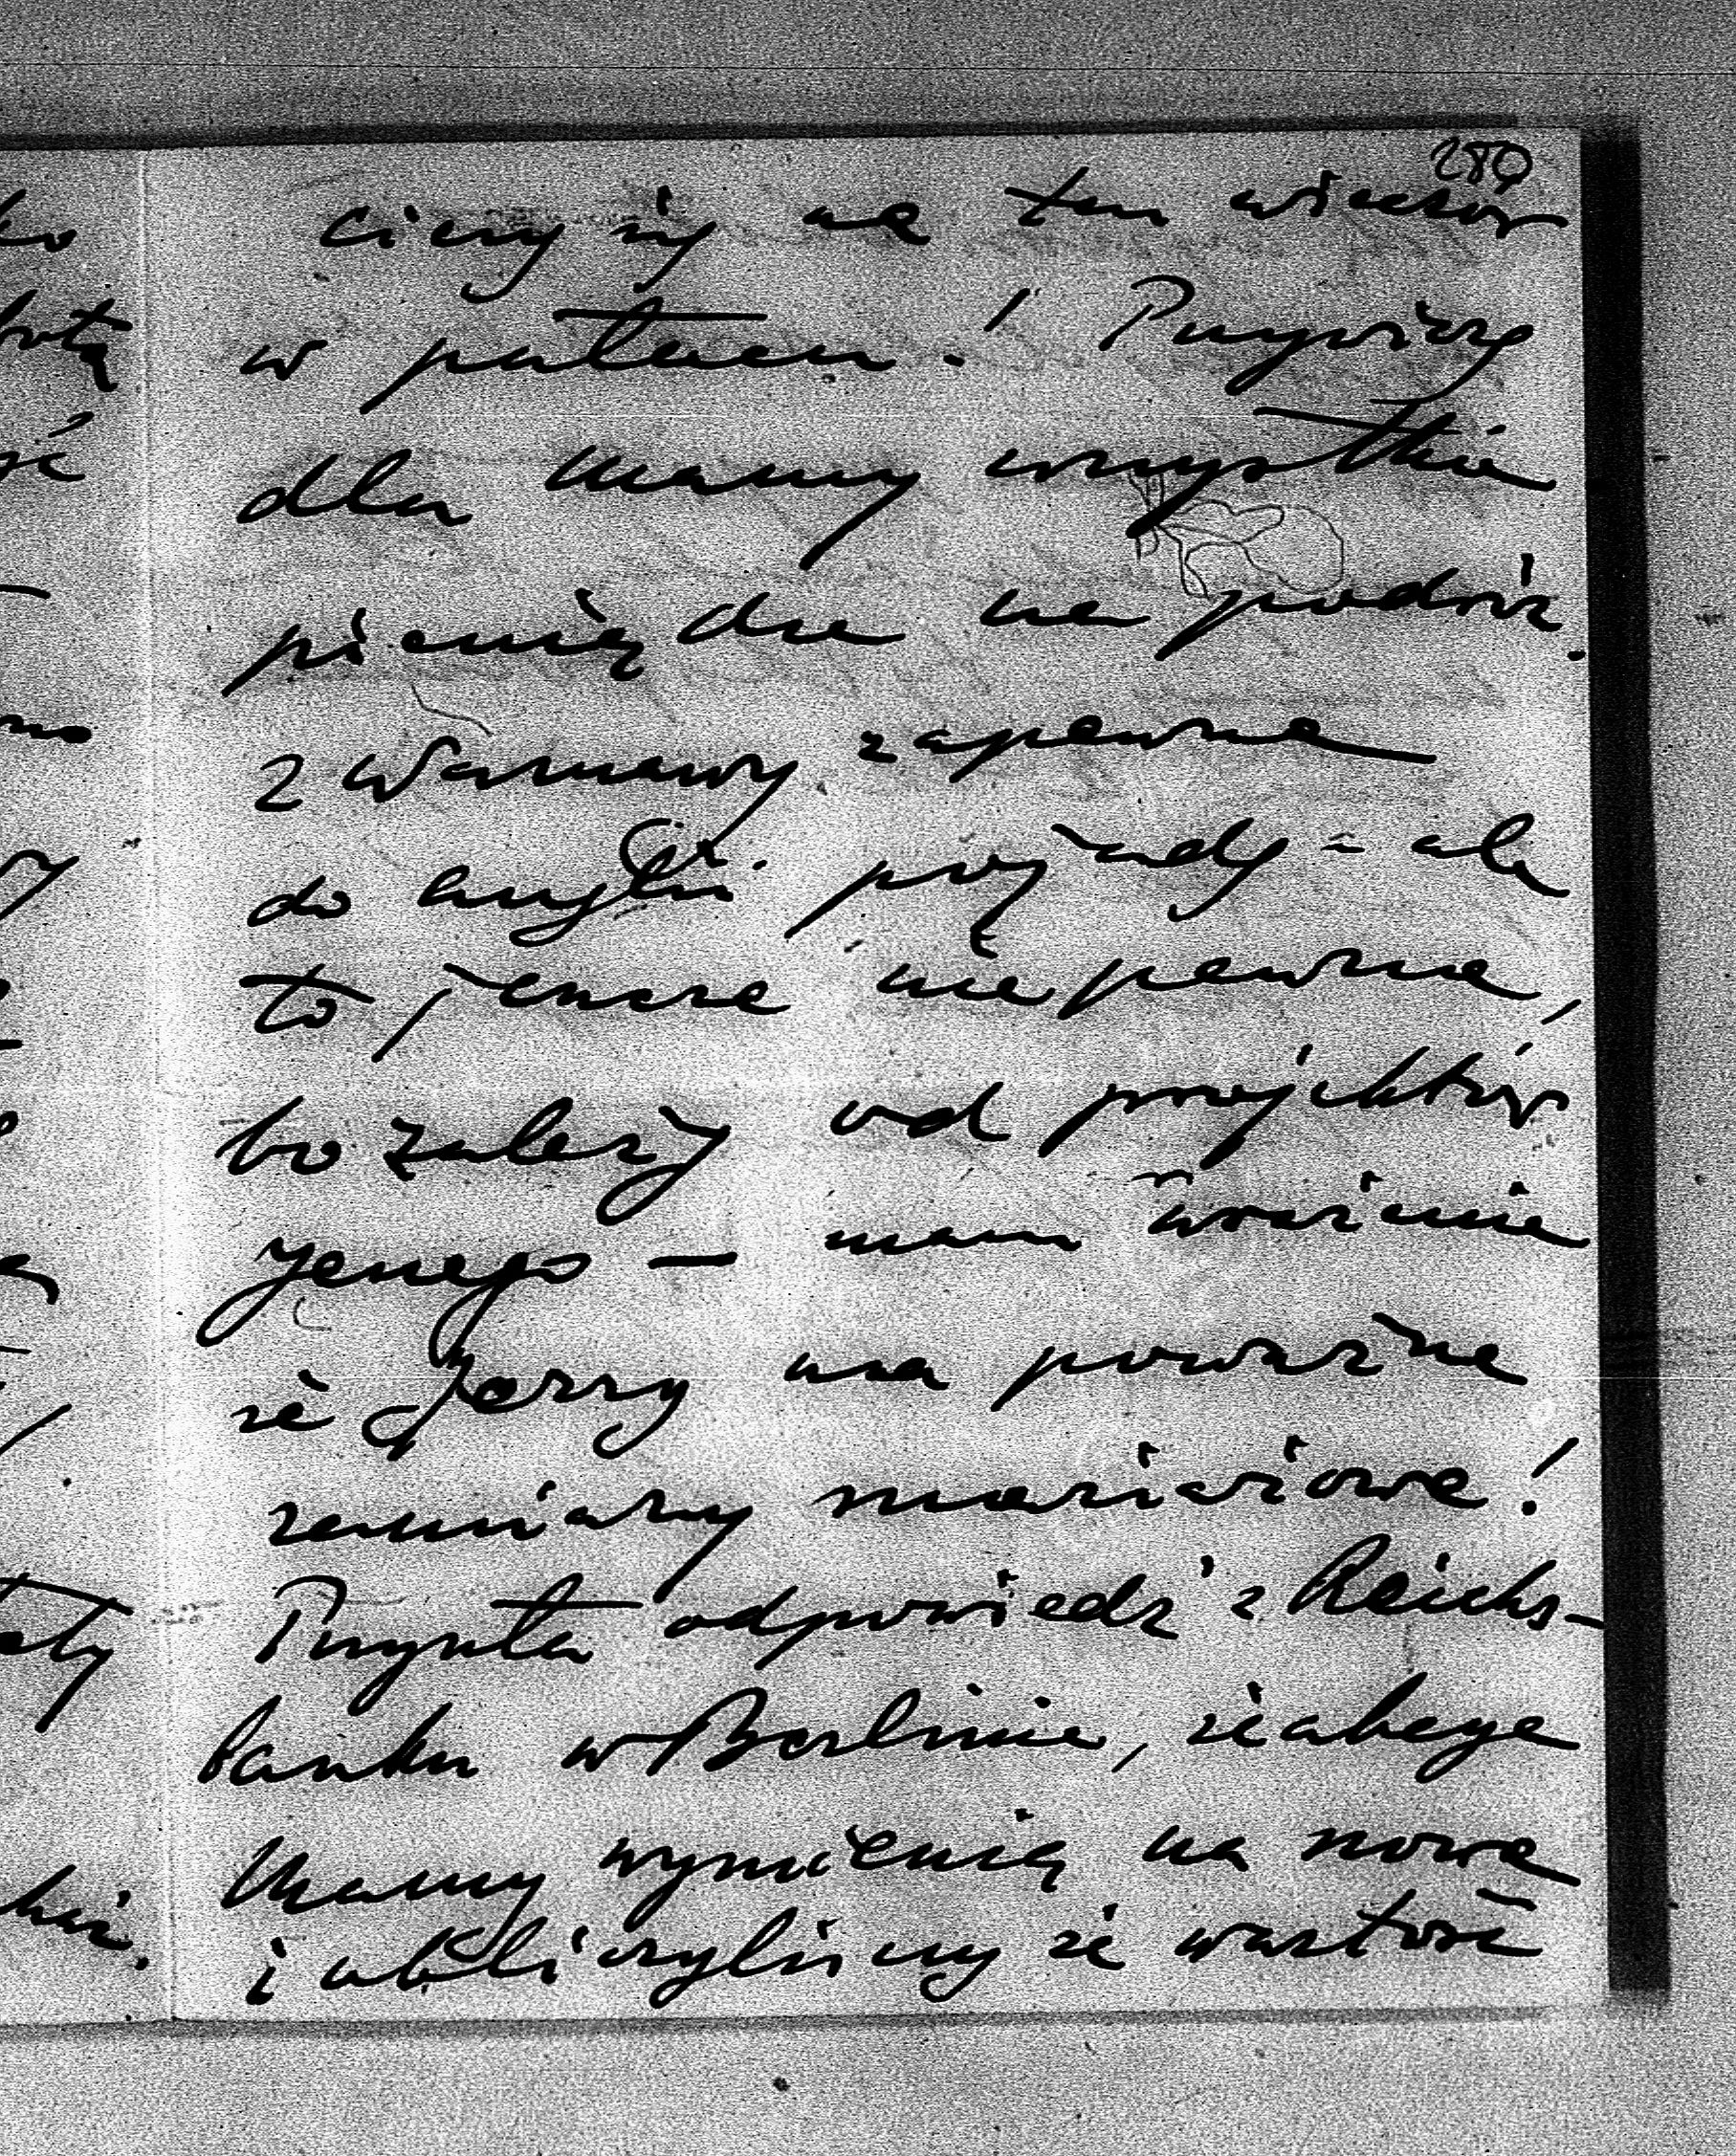 280
cieszy się na ten wieczór
w pałacu. / Przywiozę
dla Mamy wszystkie
pieniądze na podróż.
z Warszawy zapewne
do Anglii pojadę – ale
to jeszcze nie pewne,
bo zależy od projektów
Jerzego — mam wrażenie
że Jerzy ma poważne
zamiary mariażowe!
Przyszła odpowiedź z Reichs-
banku w Berlinie, że akcye
Mamy wymienią na nowe
i obliczyliśmy że wartość